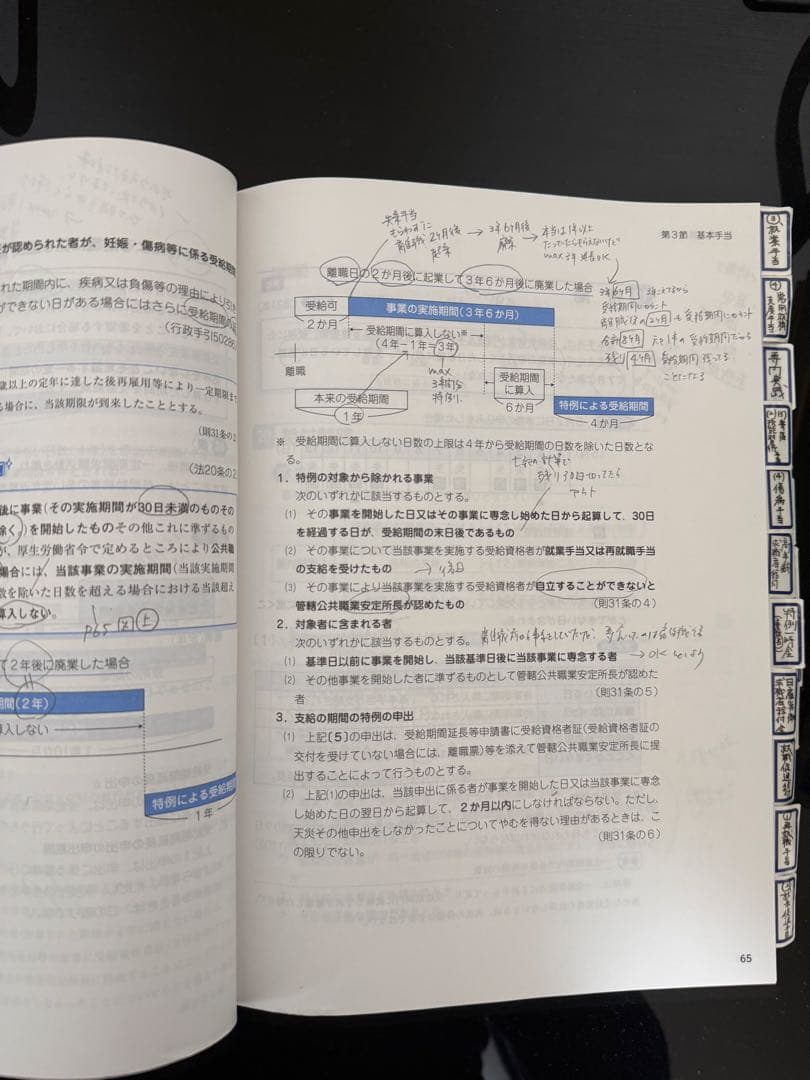 が認められた者が、妊娠・傷病等に係る受給期間
れた期間内に、疾病又は負傷等の理由により引き
ができない日がある場合にはさらに受給期間の
(行政手引50286
歳以上の定年に達した後再雇用等により一定期限ま
る場合に、当該期限が到来したこととする。
(則31条の2
(法20条の2
後に事業(その実施期間が30日未満のものその
除く)を開始したものその他これに準ずるもの
が、厚生労働省令で定めるところにより公共職
場合には、当該事業の実施期間(当該実施期間
数を除いた日数を超える場合における当該超え
算入しない。
P65 図 上
て2年後に廃業した場合
期間(2年)
算入しない
特例による受給期間
1年
第3節 基本手当
失業手当
もらわずに
離職2ヶ月後
起業
→ 3年6ヶ月後
廃業
→ 本当は1年以上
max 3年 延長OK
離職日の2か月後に起業して3年6か月後に廃業した場合
受給可
事業の実施期間(3年6か月)
2か月
受給期間に算入しない※
(4年-1年=3年)
離職
max
3年間分
特例
本来の受給期間
1年
受給期間
に算入
6か月
特例による受給期間
4か月
3年6ヶ月
受給期間にカウント
2ヶ月 も受給期間にカウント
合計8ヶ月
残り4ヶ月 受給期間残ってる
ことになる
※ 受給期間に算入しない日数の上限は4年から受給期間の日数を除いた日数とな
る。
残り30日切ってたら
アウト
1．特例の対象から除かれる事業
次のいずれかに該当するものとする。
(1) その事業を開始した日又はその事業に専念し始めた日から起算して、30日
を経過する日が、受給期間の末日後であるもの
(2) その事業について当該事業を実施する受給資格者が就業手当又は再就職手当
の支給を受けたもの
(3) その事業により当該事業を実施する受給資格者が自立することができないと
管轄公共職業安定所長が認めたもの
(則31条の4)
2．対象者に含まれる者
次のいずれかに該当するものとする。
(1) 基準日以前に事業を開始し、当該基準日後に当該事業に専念する者
→ OKとしよう
(2) その他事業を開始した者に準ずるものとして管轄公共職業安定所長が認めた
者
(則31条の5)
3．支給の期間の特例の申出
(1) 上記〔5〕の申出は、受給期間延長等申請書に受給資格者証(受給資格者証の
交付を受けていない場合には、離職票)等を添えて管轄公共職業安定所長に提
出することによって行うものとする。
(2) 上記(1)の申出は、当該申出に係る者が事業を開始した日又は当該事業に専念
し始めた日の翌日から起算して、2か月以内にしなければならない。ただし、
天災その他申出をしなかったことについてやむを得ない理由があるときは、こ
の限りでない。
(則31条の6)
65
③就業手当
④常用就職支度手当
専門実践
(4)傷病手当
特例一時金
就職促進
(1)再就職手当